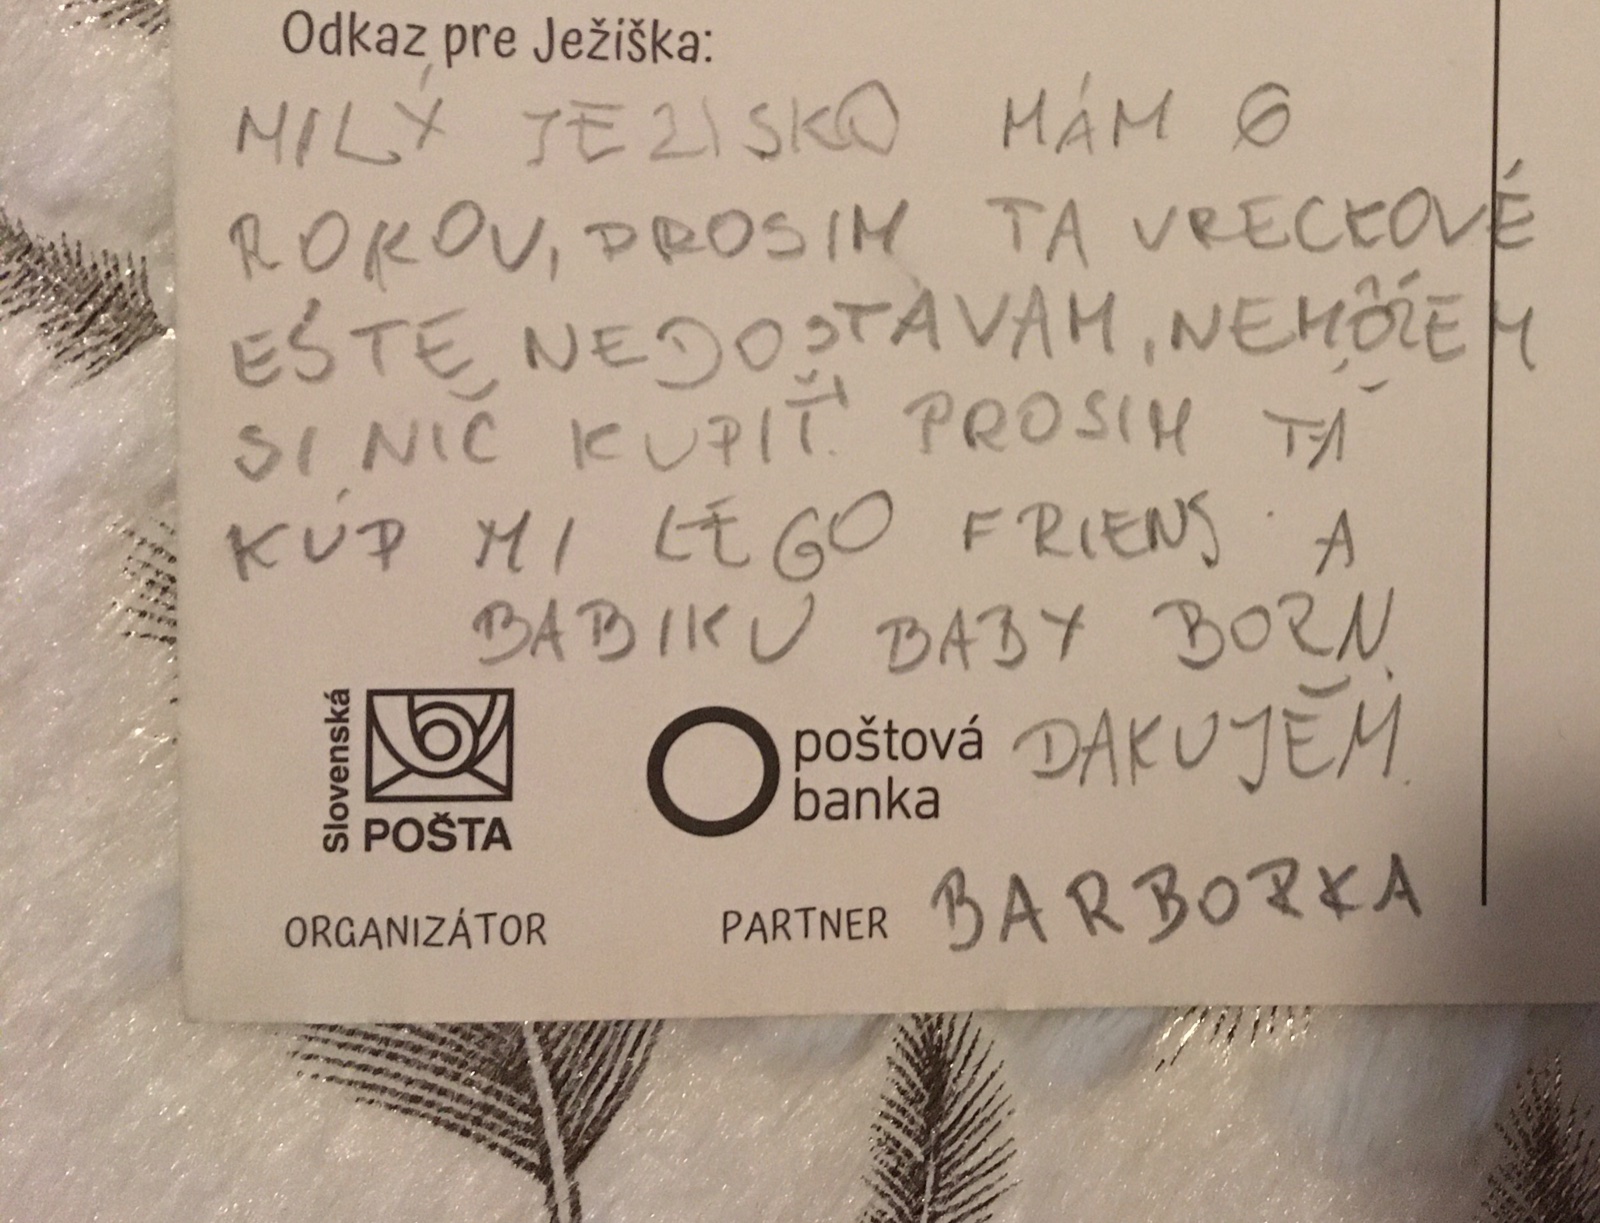 Odkaz pre Ježiška:
MILÝ JEZISKO MÁM 6
ROKOV, PROSIM TA VRECKOVÉ
EŠTE NEDOSTÁVAM, NEMÔŽEM
SI NIČ KÚPIŤ. PROSIM ŤA
KÚP MI LEGO FRIENS A
BABIKU BABY BORN.
ĎAKUJEM.
BARBORKA
Slovenská
POŠTA
poštová
banka
ORGANIZÁTOR
PARTNER